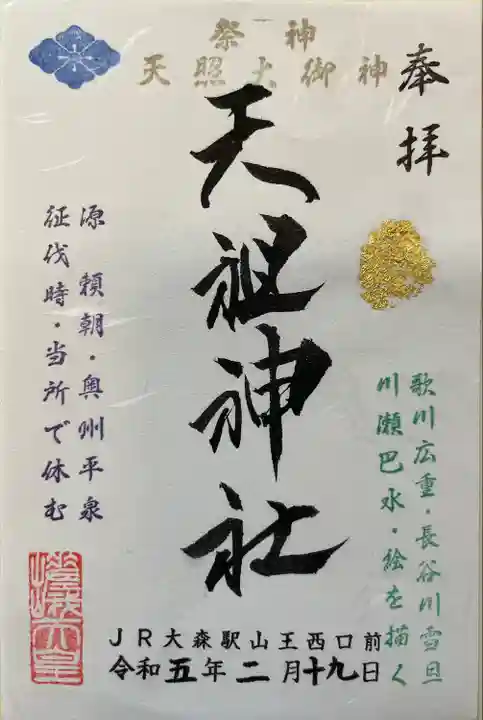 奉拝
祭神
天照大御神
天祖神社
歌川広重・長谷川雪旦
川瀬巴水・絵を描く
源頼朝・奥州平泉
征伐時・当所で休む
JR大森駅山王西口前
令和五年二月十九日